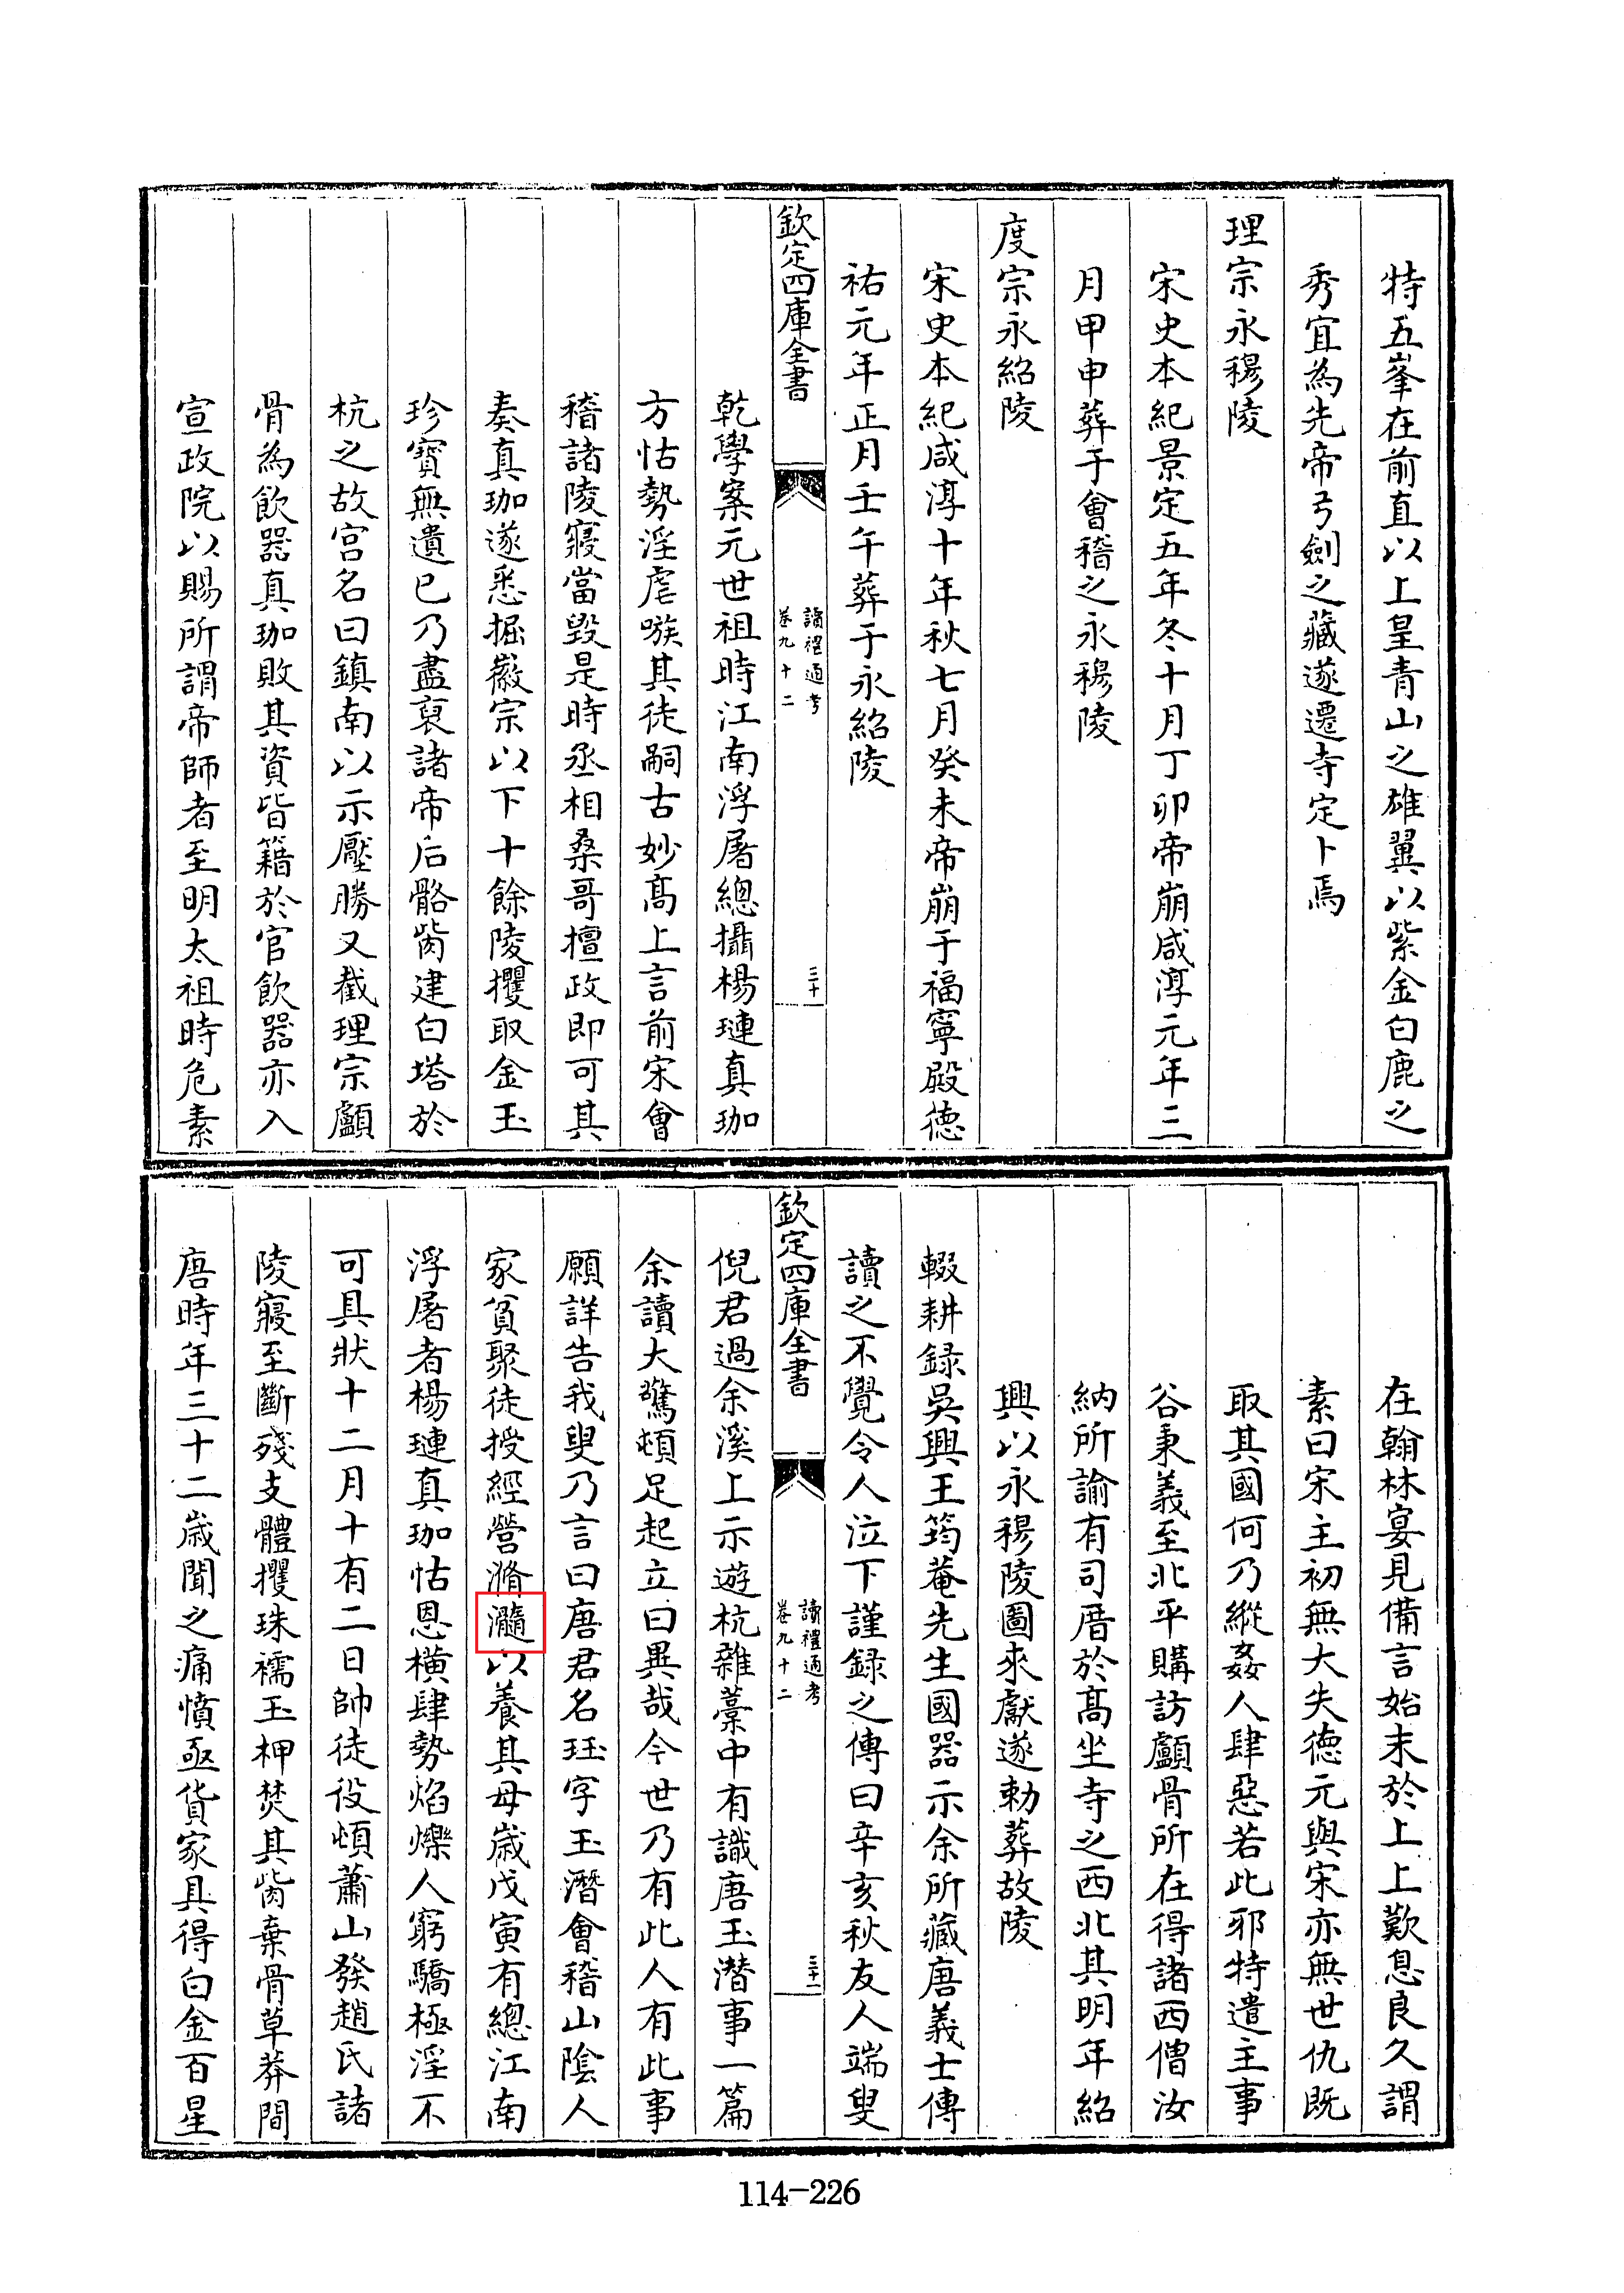 特五峯在前直以上皇青山之雄翼以紫金白鹿之
秀宜為先帝弓劍之藏遂遷寺定卜焉
理宗永穆陵
宋史本紀景定五年冬十月丁卯帝崩咸淳元年三
月甲申葬于會稽之永穆陵
度宗永紹陵
宋史本紀咸淳十年秋七月癸未帝崩于福寧殿德
祐元年正月壬午葬于永紹陵
欽定四庫全書
讀禮通考
卷九十二
三十
乾學案元世祖時江南浮屠總攝楊璉真珈
方怙勢淫虐嗾其徒嗣古妙高上言前宋會
稽諸陵寢當毀是時丞相桑哥擅政即可其
奏真珈遂悉掘徽宗以下十餘陵攫取金玉
珍寶無遺已乃盡裒諸帝后骼胔建白塔於
杭之故宫名曰鎮南以示壓勝又截理宗顱
骨為飲器真珈敗其資皆籍於官飲器亦入
宣政院以賜所謂帝師者至明太祖時危素
在翰林宴見備言始末於上上歎息良久謂
素曰宋主初無大失徳元與宋亦無世仇既
取其國何乃縱姦人肆惡若此耶特遣主事
谷秉義至北平購訪顱骨所在得諸西僧汝
納所諭有司厝於髙坐寺之西北其明年紹
興以永穆陵圖來獻遂勅葬故陵
輟耕録吳興王筠菴先生國器示余所藏唐義士傳
讀之不覺令人泣下謹録之傳曰辛亥秋友人端叟
欽定四庫全書
讀禮通考
卷九十二
三十一
倪君過余溪上示遊杭雜藁中有識唐玉潛事一篇
余讀大驚頓足起立曰異哉今世乃有此人有此事
願詳告我叟乃言曰唐君名珏字玉潛會稽山陰人
家貧聚徒授經營滫瀡以養其母歲戊寅有總江南
浮屠者楊璉真珈怙恩橫肆勢焰爍人窮驕極淫不
可具狀十二月十有二日帥徒役頓蕭山發趙氏諸
陵寢至斷殘支體攫珠襦玉柙焚其胔棄骨草莽間
唐時年三十二歲聞之痛憤亟貨家具得白金百星
114-226